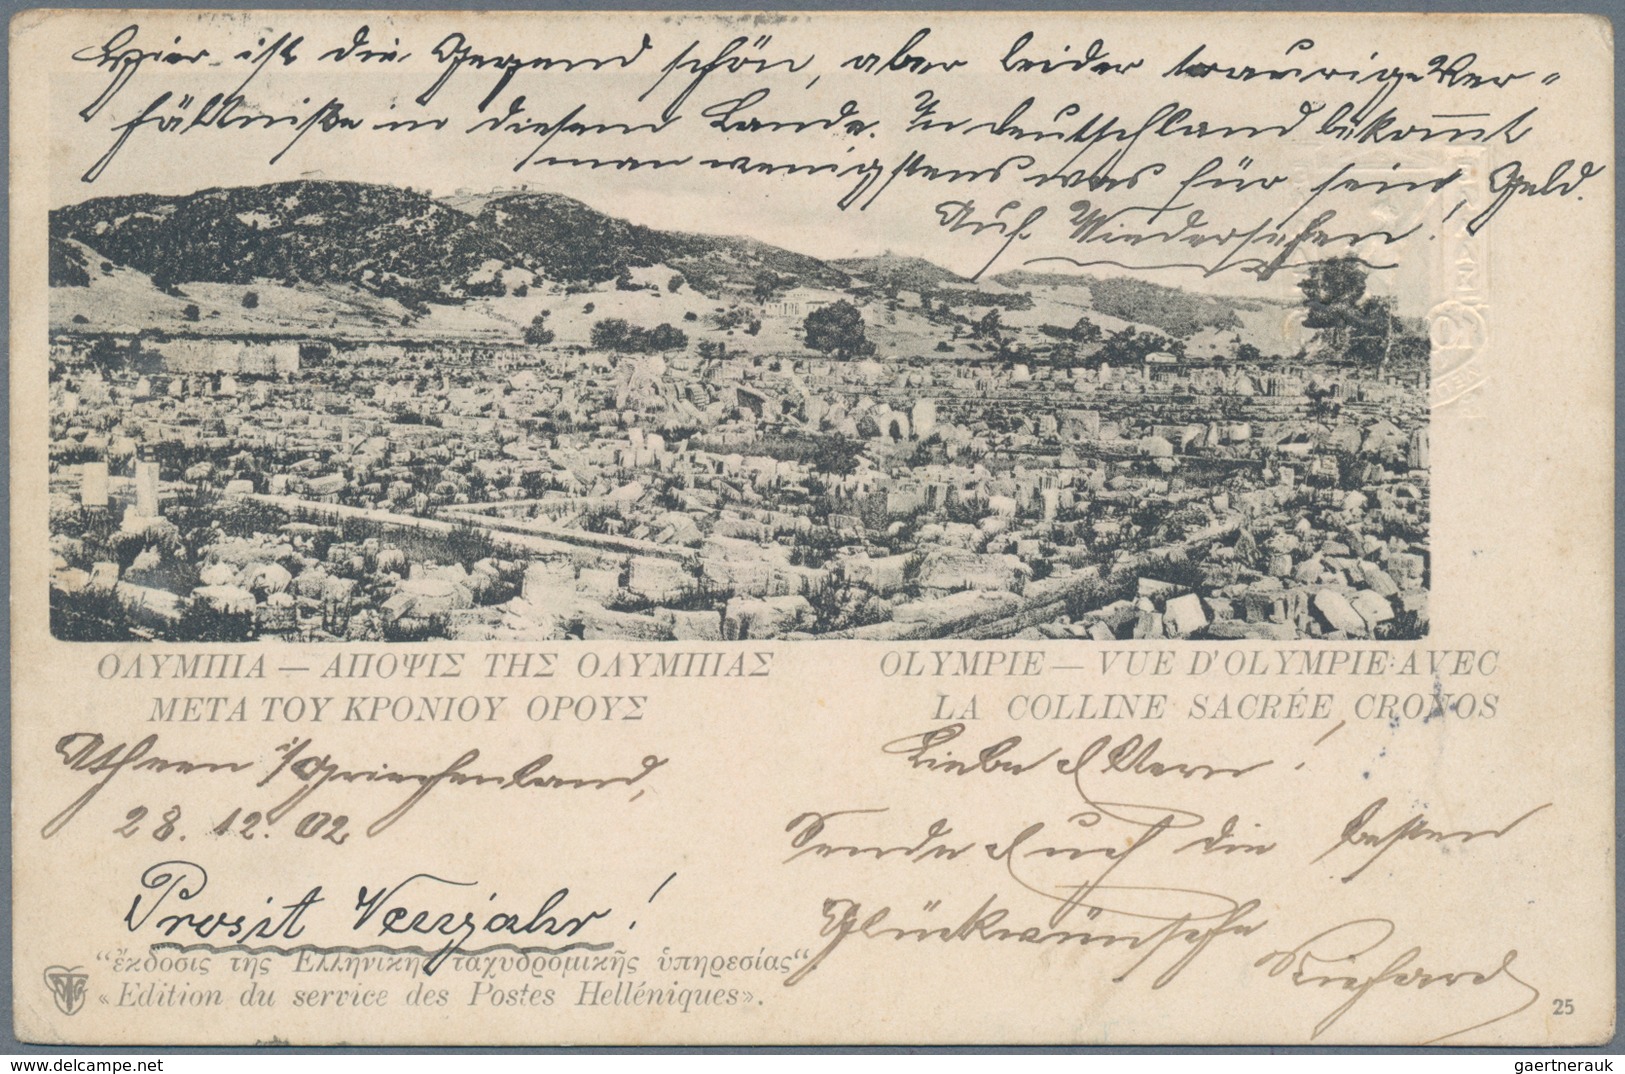 Hier ist die Gegend schön, aber leider traurige Ver=
hältniße in diesem Lande. In Deutschland bekom̅t
man wenigstens was für sein Geld.
Auf Wiedersehen!
ΟΛΥΜΠΙΑ — ΑΠΟΨΙΣ ΤΗΣ ΟΛΥΜΠΙΑΣ
ΜΕΤΑ ΤΟΥ ΚΡΟΝΙΟΥ ΟΡΟΥΣ
OLYMPIE — VUE D'OLYMPIE AVEC
LA COLLINE SACRÉE CRONOS
Athen i/Griechenland,
28. 12. 02
Prosit Neujahr!
Liebe Eltern!
Sende Euch die besten
Glückwünsche
Richard
"ἔκδοσις τῆς Ἑλληνικῆς ταχυδρομικῆς ὑπηρεσίας"
«Edition du service des Postes Helléniques».
25
delcampe.net
gaertnerauk